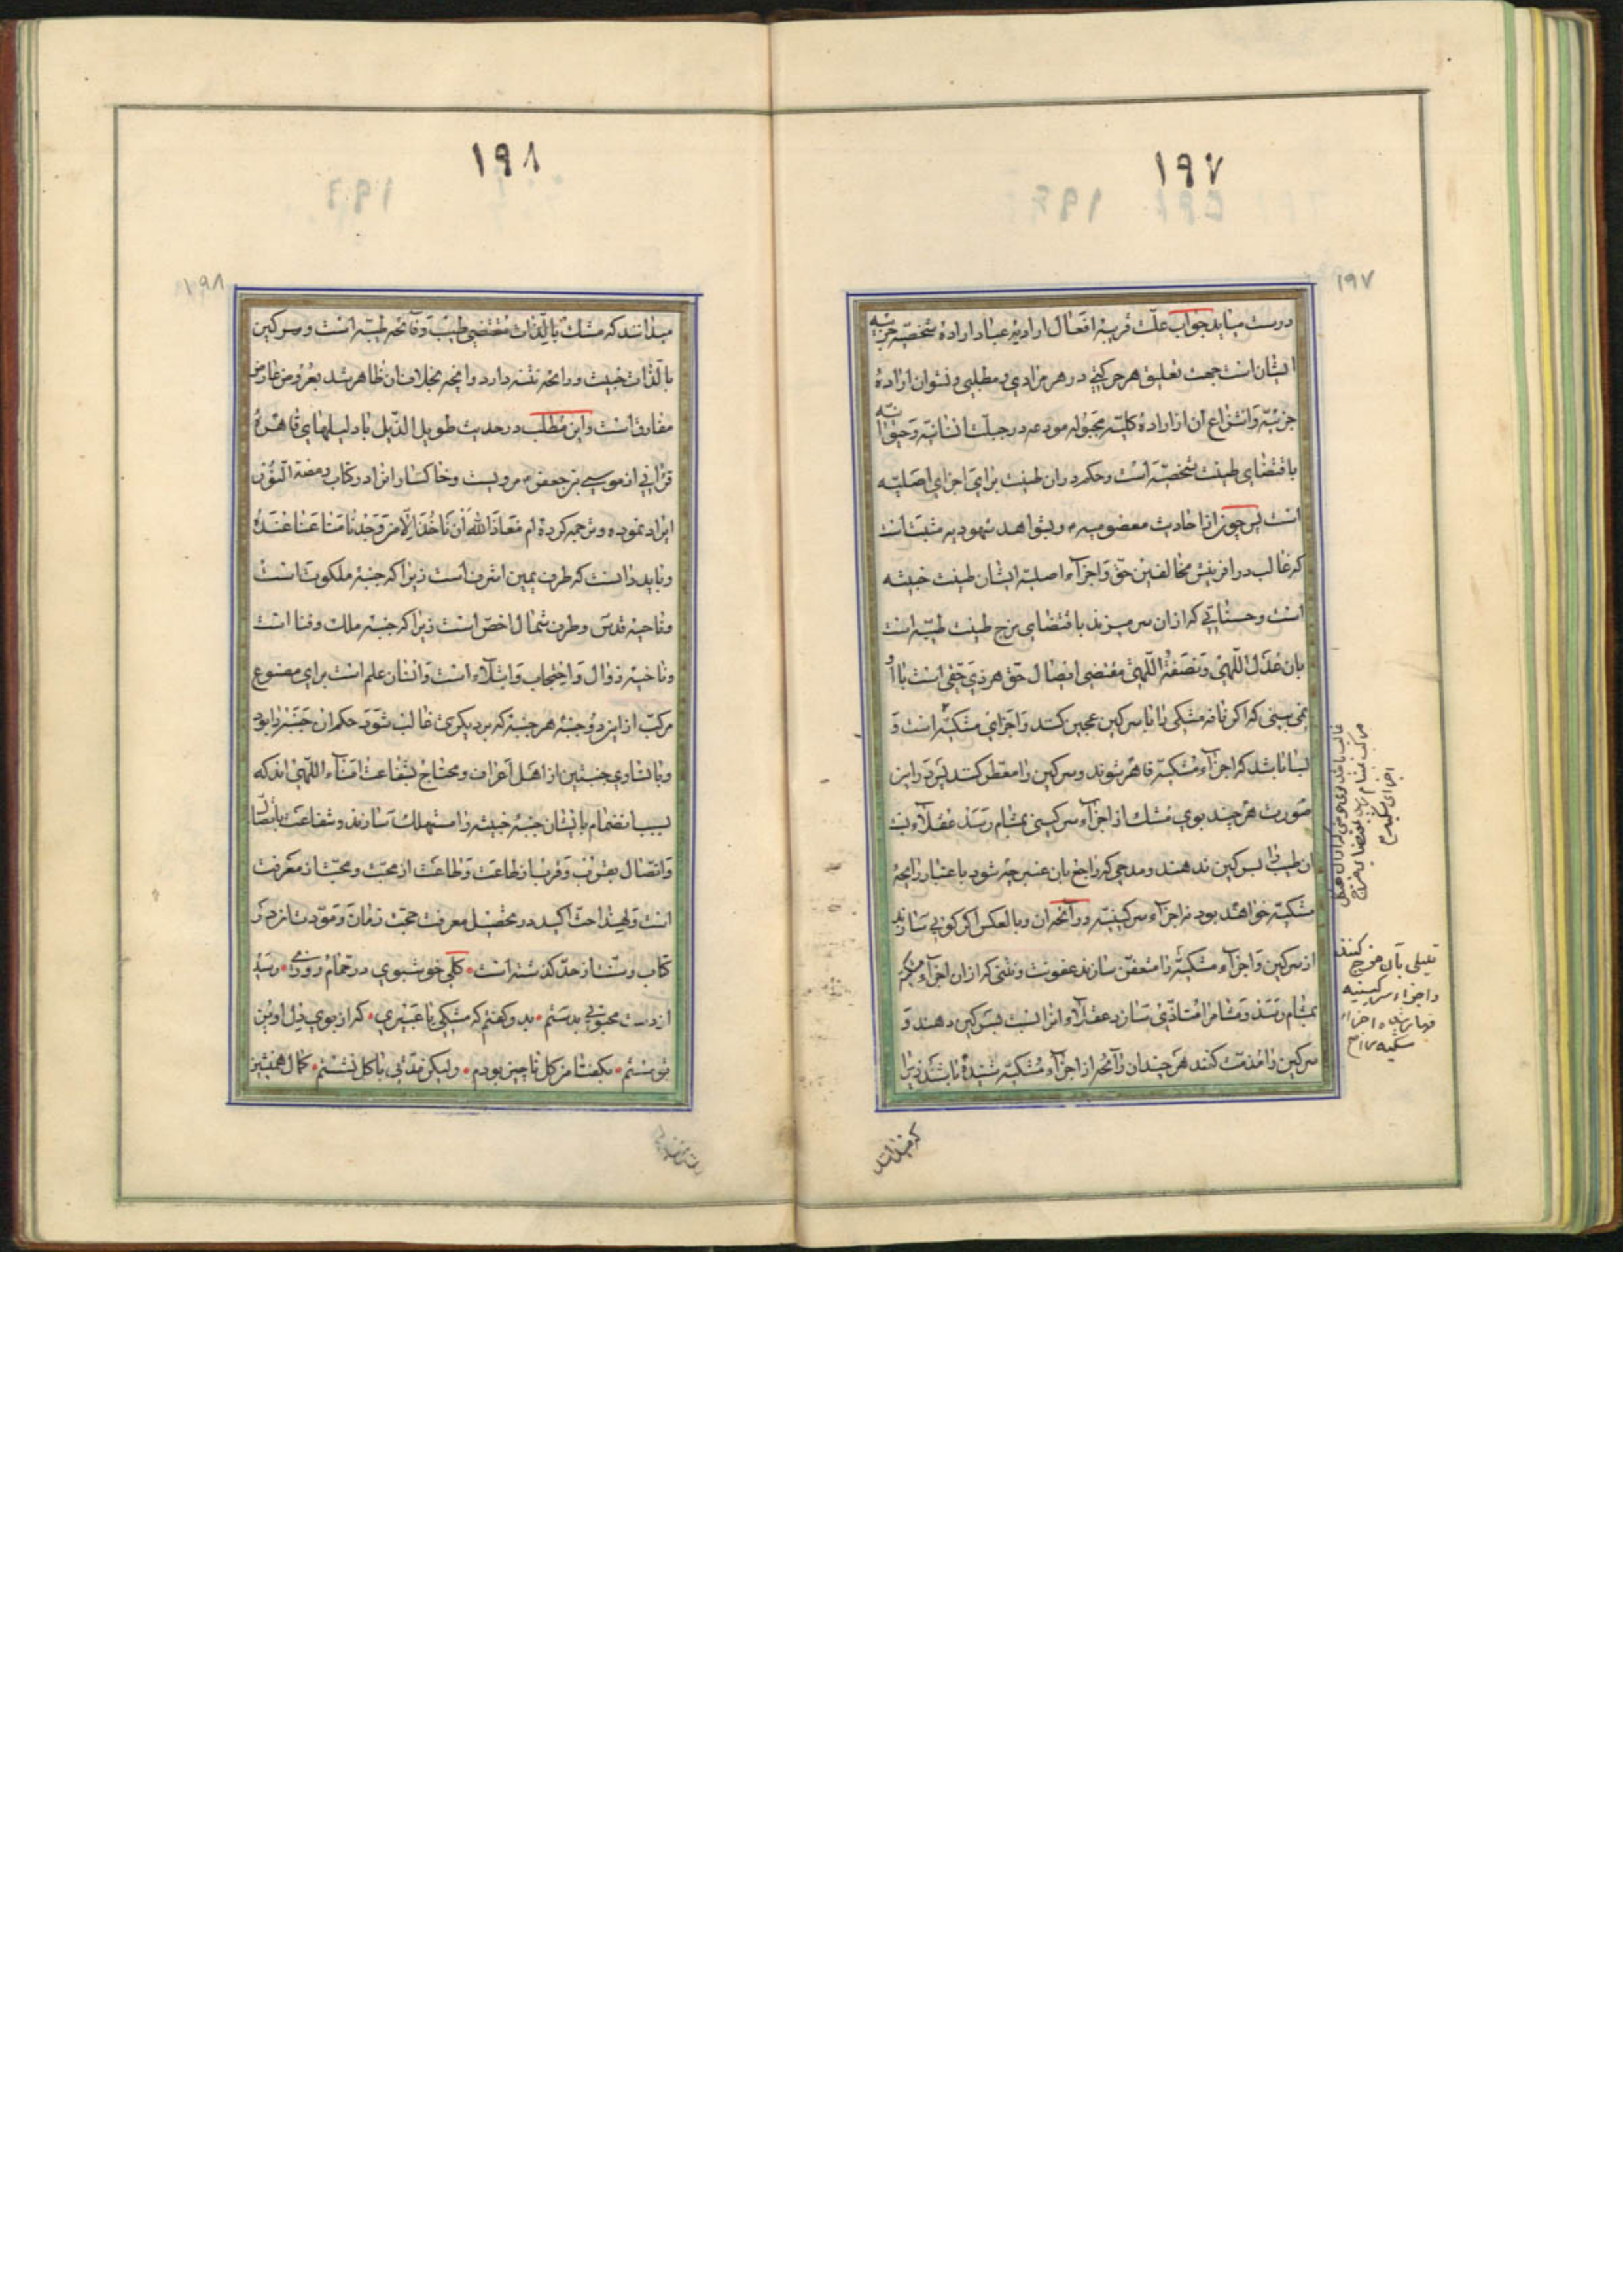 ۱۹۷
۱۹۷
درست میاید جواب علّت قریبهٔ افعال ارادیهٔ عباد ارادهٔ شخصیّه جزئیه
ایشان است جهت تعلیق هر حرکتی در هر مرادی و مطلبی و نتوان ارادهٔ
جزئیّه و انتزاع آن از ارادهٔ کلیّه مجبوله مودعه در جبلّت انسانیّه و حیوانیه
باقتضای طینت شخصیّه است و حکم در آن طینت برای اجزای اصلیّه
است پس چون از احادیث معصومیه و شواهد شهودیه مثبت است
که غالب در افرینش مخالفین حق و اجزاء اصلیّه ایشان طینت خبیثه
است و حسناتی که از آن سر میزند باقتضای مزج طینت طیّبه است
بان عدل اللّهی و نصفهٔ اللّهی مقتضی ایصال حقّ هر ذی حقّی است با او
نمی بینی که اکر نافه مشکی را با سرکین عجین کنند و اجزای مشکیّه است و
بسا باشد که اجزاء مشکیّه قاهر شوند و سرکین را معطّر کنند پس در این
صورت هر چند بوی مشک از اجزاء سرکینی بمشام رسد عقلاء نسبت
آن طیب را بسرکین ندهند و مدحی که راجع بان عنبرچه شود باعتبار رایحهٔ
مشکیّه خواهد بود نه اجزاء سرکینیّه در آنحه ان و بالعکس اکر کویی سازند
از سرکین و اجزاء مشکیّه را متعفّن سازند عفونت و نتنی که از ان اجزاء مشکیه
بمشام رسد و مشام را متاذّی سازد عقلاء انرا نسبت بسرکین دهند و
سرکین را مذمّت کنند هر چند ان رائحه از اجزاء مشکیّه شنیده باشند زیرا
که میدانند
قلیلی بآن مزج کنند
و اجزاء سرکینیه
اجزای مشکیه
۱۹۸
۱۹۸
میدانند که مشک بالذّات مقتضی طیب و فائحه طیّبه است و سرکین
بالذّات خبیث و رایحهٔ نتنه دارد و انچه بخلاف ان ظاهر شد بعروض عارض
مفارق است و این مطلب در حدیث طویل الذّیل با دلیلهای قاهرهٔ
قرانی از موسی بن جعفر مرویست و خاکسار انرا در کتاب ومضة النّور
ایراد نموده و ترجمه کرده ام معاذ الله أن نأخذ إلّا من وجدنا متاعنا عنده
و باید دانست که طرف یمین اشرف است زیرا که جنبهٔ ملکوت است
و ناحیهٔ قدس و طرف شمال اخصّ است زیرا که جنبهٔ ملک و فنا است
و ناحیهٔ زوال و احتجاب و ابتلاء است و انسان علم است برای مصنوع
مرکب از این دو جنبهٔ هر جنبهٔ که بر دیکری غالب شود حکم ان جنبه را بود
و با تساوی جنبتین از اهل اعراف و محتاج بشفاعت امناء اللّهی اند که
بسبب انضمام بایشان جنبهٔ خبیثه را مستهلک سازند و شفاعت باتصال
و اتّصال بقرب و قرب از طاعت و طاعت از محبّت و محبّت از معرفت
است و لهذا حثّ اکید در تحصیل معرفت حجّت زمان و مودّت از مرد
کتاب و سنّت از حد کذشته است • کلی خوشبوی در حمّام روزی • رسید
از دست محبوبی بدستم • بدو کفتم که مشکی یا عبیری • که از بوی دل اویز
تو مستم • بکفتا من کل ناچیز بودم • ولیکن مدّتی با کل نشستم • کمال همنشین